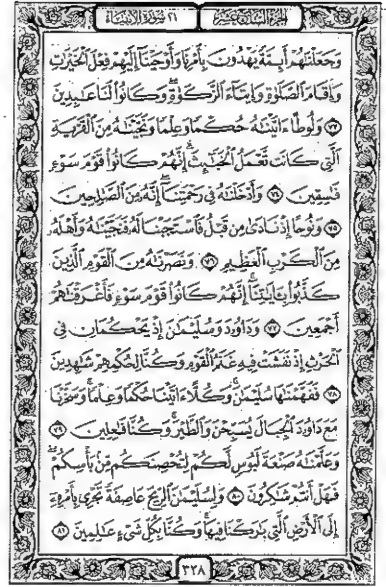 الجزء السابع عشر ٢١ سورة الأنبياء
وَجَعَلْنَٰهُمْ أَئِمَّةً يَهْدُونَ بِأَمْرِنَا وَأَوْحَيْنَآ إِلَيْهِمْ فِعْلَ الْخَيْرَٰتِ
وَإِقَامَ الصَّلَوٰةِ وَإِيتَآءَ الزَّكَوٰةِ وَكَانُوا۟ لَنَا عَٰبِدِينَ
﴿٧٣﴾ وَلُوطًا ءَاتَيْنَٰهُ حُكْمًا وَعِلْمًا وَنَجَّيْنَٰهُ مِنَ الْقَرْيَةِ
الَّتِى كَانَت تَّعْمَلُ الْخَبَٰٓئِثَ إِنَّهُمْ كَانُوا۟ قَوْمَ سَوْءٍ
فَٰسِقِينَ ﴿٧٤﴾ وَأَدْخَلْنَٰهُ فِى رَحْمَتِنَآ إِنَّهُۥ مِنَ الصَّٰلِحِينَ
﴿٧٥﴾ وَنُوحًا إِذْ نَادَىٰ مِن قَبْلُ فَاسْتَجَبْنَا لَهُۥ فَنَجَّيْنَٰهُ وَأَهْلَهُۥ
مِنَ الْكَرْبِ الْعَظِيمِ ﴿٧٦﴾ وَنَصَرْنَٰهُ مِنَ الْقَوْمِ الَّذِينَ
كَذَّبُوا۟ بِـَٔايَٰتِنَآ إِنَّهُمْ كَانُوا۟ قَوْمَ سَوْءٍ فَأَغْرَقْنَٰهُمْ
أَجْمَعِينَ ﴿٧٧﴾ وَدَاوُۥدَ وَسُلَيْمَٰنَ إِذْ يَحْكُمَانِ فِى
الْحَرْثِ إِذْ نَفَشَتْ فِيهِ غَنَمُ الْقَوْمِ وَكُنَّا لِحُكْمِهِمْ شَٰهِدِينَ
﴿٧٨﴾ فَفَهَّمْنَٰهَا سُلَيْمَٰنَ وَكُلًّا ءَاتَيْنَا حُكْمًا وَعِلْمًا وَسَخَّرْنَا
مَعَ دَاوُۥدَ الْجِبَالَ يُسَبِّحْنَ وَالطَّيْرَ وَكُنَّا فَٰعِلِينَ ﴿٧٩﴾
وَعَلَّمْنَٰهُ صَنْعَةَ لَبُوسٍ لَّكُمْ لِتُحْصِنَكُم مِّنۢ بَأْسِكُمْ
فَهَلْ أَنتُمْ شَٰكِرُونَ ﴿٨٠﴾ وَلِسُلَيْمَٰنَ الرِّيحَ عَاصِفَةً تَجْرِى بِأَمْرِهِۦٓ
إِلَى الْأَرْضِ الَّتِى بَٰرَكْنَا فِيهَا وَكُنَّا بِكُلِّ شَىْءٍ عَٰلِمِينَ ﴿٨١﴾
٣٢٨